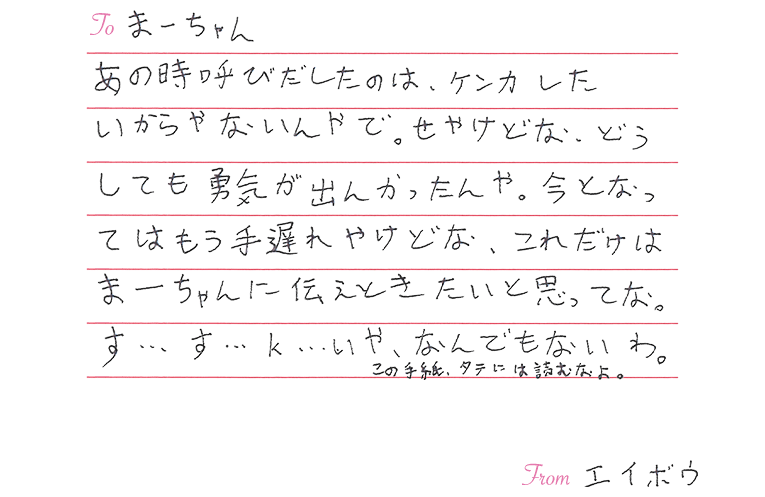 To まーちゃん
あの時呼びだしたのは、ケンカした
いからやないんやで。せやけどな、どう
しても勇気が出んかったんや。今となっ
てはもう手遅れやけどな、これだけは
まーちゃんに伝えときたいと思ってな。
す…す…k…いや、なんでもないわ。
この手紙、タテには読むなよ。
From エイボウ